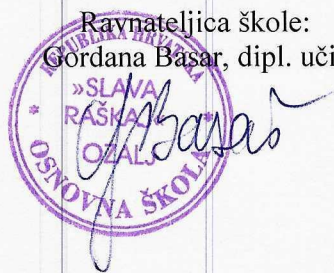 Ravnateljica škole:
Gordana Basar, dipl. uči
REPUBLIKA HRVATSKA
»SLAVA
RAŠKAJ«
OZALJ
* OSNOVNA ŠKOLA *